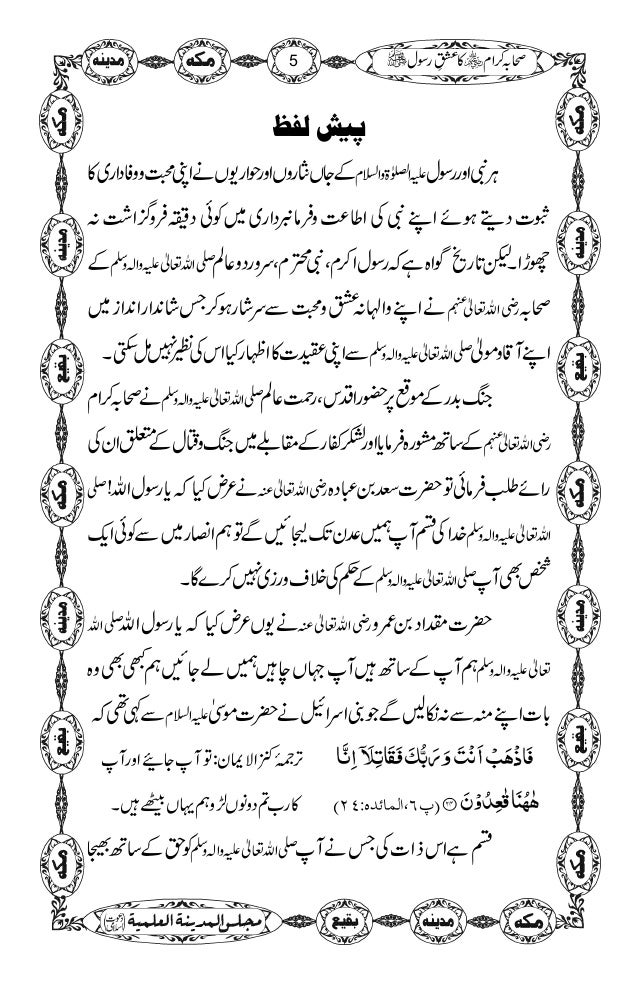 صحابہ کرام کا عشقِ رسول ﷺ
5
مکہ
مدینہ
پیش لفظ
ہر نبی اور رسول علیہ الصلوٰۃ والسلام کے جاں نثاروں اور حواریوں نے اپنی محبت و وفاداری کا
ثبوت دیتے ہوئے اپنے نبی کی اطاعت وفرمانبرداری میں کوئی دقیقہ فروگزاشت نہ
چھوڑا۔ لیکن تاریخ گواہ ہے کہ رسول اکرم، نبی محترم، سرور دو عالم صلی اللہ تعالیٰ علیہ والہ وسلم کے
صحابہ رضی اللہ تعالیٰ عنہم نے اپنے والہانہ عشق ومحبت سے سرشار ہوکر جس شاندار انداز میں
اپنے آقا و مولیٰ صلی اللہ تعالیٰ علیہ والہ وسلم سے اپنی عقیدت کا اظہار کیا اس کی نظیر نہیں مل سکتی۔
جنگ بدر کے موقع پر حضور اقدس، رحمت عالم صلی اللہ تعالیٰ علیہ والہ وسلم نے صحابہ کرام
رضی اللہ تعالیٰ عنہم کے ساتھ مشورہ فرمایا اور لشکر کفار کے مقابلے میں جنگ و قتال کے متعلق ان کی
رائے طلب فرمائی تو حضرت سعد بن عبادہ رضی اللہ تعالیٰ عنہ نے عرض کیا کہ یا رسول اللہ! صلی
اللہ تعالیٰ علیہ والہ وسلم خدا کی قسم آپ ہمیں عدن تک لیجائیں گے تو ہم انصار میں سے کوئی ایک
شخص بھی آپ صلی اللہ تعالیٰ علیہ والہ وسلم کے حکم کی خلاف ورزی نہیں کرے گا۔
حضرت مقداد بن عمرو رضی اللہ تعالیٰ عنہ نے یوں عرض کیا کہ یا رسول اللہ صلی اللہ
تعالیٰ علیہ والہ وسلم ہم آپ کے ساتھ ہیں آپ جہاں چاہیں ہمیں لے جائیں ہم کبھی بھی وہ
بات اپنے منہ سے نہ نکالیں گے جو بنی اسرائیل نے حضرت موسیٰ علیہ السلام سے کہی تھی کہ
فَاذْهَبْ اَنْتَ وَرَبُّكَ فَقَاتِلَاۤ اِنَّا ترجمۂ کنزالایمان: تو آپ جایئے اور آپ
هٰهُنَا قٰعِدُوْنَ ۝۲۴ (پ ٦، المائدہ: ٢٤) کا رب تم دونوں لڑو ہم یہاں بیٹھے ہیں۔
قسم ہے اس ذات کی جس نے آپ صلی اللہ تعالیٰ علیہ والہ وسلم کو حق کے ساتھ بھیجا
مکہ
مدینہ
بقیع
مکہ
مدینہ
بقیع
مکہ
مکہ
مدینہ
بقیع
مکہ
مدینہ
بقیع
مکہ
مکہ
مدینہ
بقیع
مجلس المدینة العلمیة